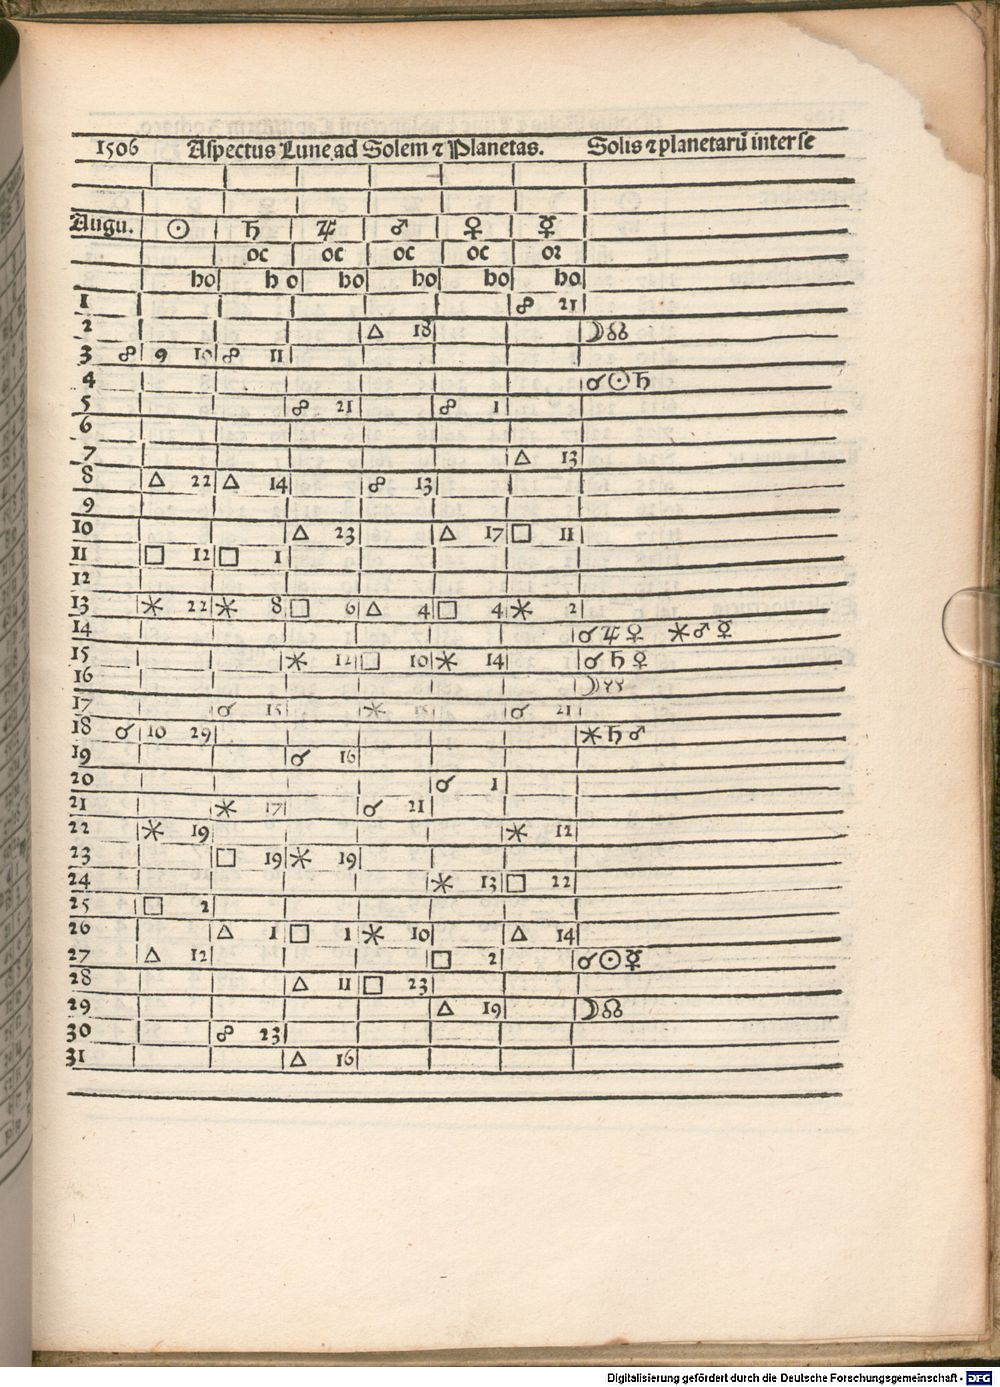 1506 Aspectus Lune ad Solem ⁊ Planetas. Solis ⁊ planetarũ inter se
Augu. ☉ ♄ ♃ ♂ ♀ ☿
oc oc oc oc oꝛ
ho ho ho ho ho ho
1 ☍ 21
2 △ 18 ☽☊
3 ☍ 9 10 ☍ 11
4 ☌☉♄
5 ☍ 21 ☍ 1
6
7 △ 13
8 △ 22 △ 14 ☍ 13
9
10 △ 23 △ 17 □ 11
11 □ 12 □ 1
12
13 ⚹ 22 ⚹ 8 □ 6 △ 4 □ 4 ⚹ 2
14 ☌♃♀ ⚹♂☿
15 ⚹ 12 □ 10 ⚹ 14 ☌♄♀
16 ☽
17 ☌ 15 ⚹ ☌ 21
18 ☌ 10 29 ⚹♄♂
19 ☌ 16
20 ☌ 1
21 ⚹ 17 ☌ 21
22 ⚹ 19 ⚹ 12
23 □ 19 ⚹ 19
24 ⚹ 13 □ 22
25 □ 2
26 △ 1 □ 1 ⚹ 10 △ 14
27 △ 12 □ 2 ☌☉☿
28 △ 11 □ 23
29 △ 19 ☽☊
30 ☍ 23
31 △ 16
Digitalisierung gefördert durch die Deutsche Forschungsgemeinschaft - DFG